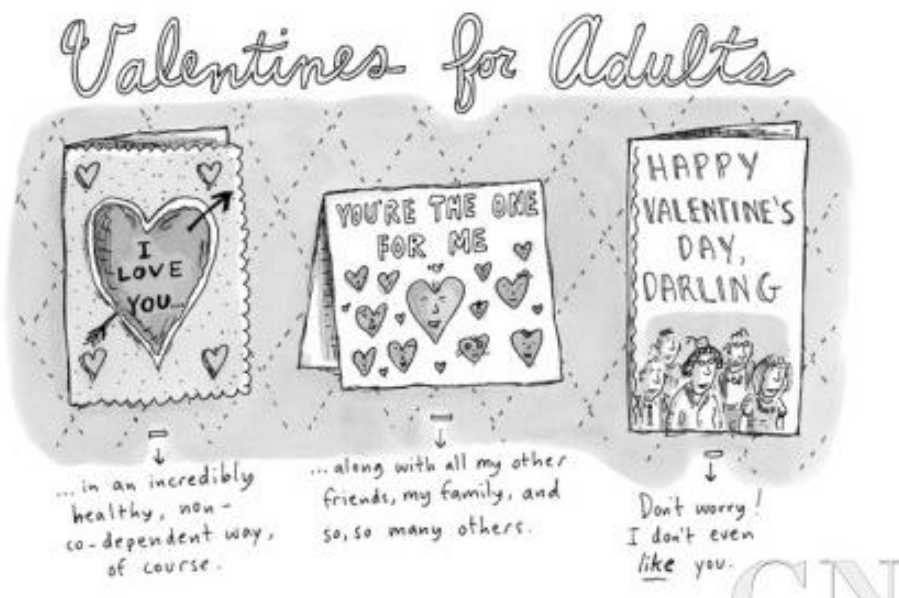 Valentines for Adults
I
LOVE
YOU...
...in an incredibly
healthy, non-
co-dependent way,
of course.
YOU'RE THE ONE
FOR ME
...along with all my other
friends, my family, and
so, so many others.
HAPPY
VALENTINE'S
DAY,
DARLING
Don't worry!
I don't even
like you.
CN